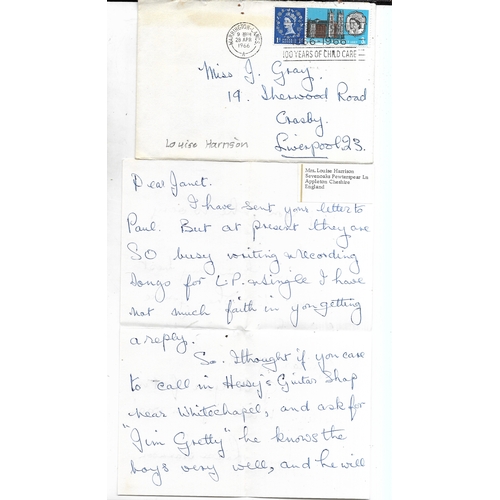 WARRINGTON LANCS
8 PM
28 APR
1966
1866-1966
100 YEARS OF CHILD CARE
Miss J. Gray.
19. Sherwood Road
Crosby.
Liverpool 23.
Louise Harrison
Mrs. Louise Harrison
Sevenoaks Pewterspear Ln
Appleton Cheshire
England
Dear Janet.
I have sent your letter to
Paul. But at present they are
SO busy writing & recording
songs for L.P. & single I have
not much faith in you getting
a reply.
So. I thought if you care
to call in Hessy's Guitar Shop
near Whitechapel, and ask for
"Jim Gretty" he knows the
boys very well, and he will